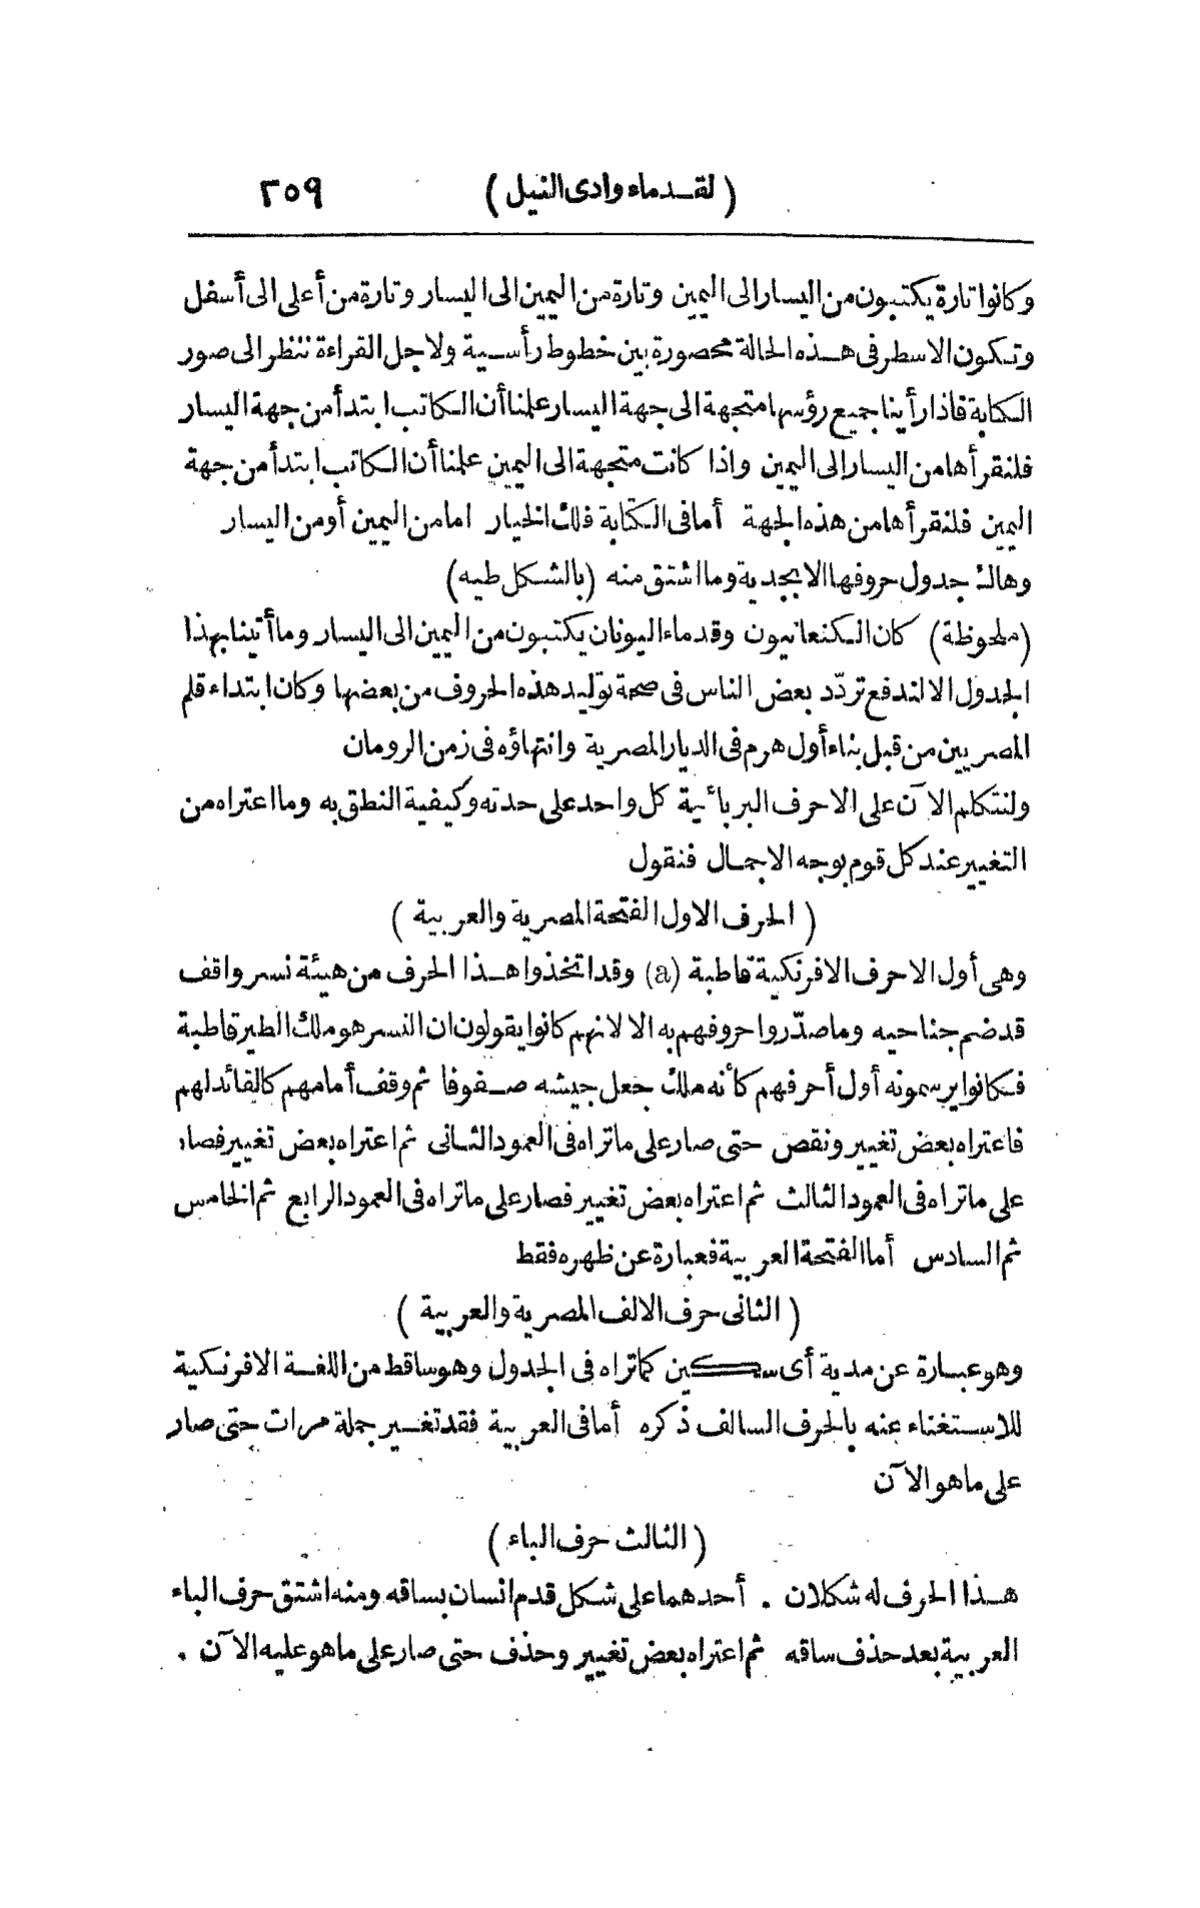 (لقدماء وادى النيل) ٢٥٩
وكانوا تارة يكتبون من اليسار الى اليمين وتارة من اليمين الى اليسار وتارة من أعلى الى أسفل
وتكون الاسطر فى هذه الحالة محصورة بين خطوط رأسية ولاجل القراءة ننظر الى صور
الكتابة فاذا رأينا جميع رؤسها متجهة الى جهة اليسار علمنا أن الكاتب ابتدأ من جهة اليسار
فلنقرأها من اليسار الى اليمين واذا كانت متجهة الى اليمين علمنا أن الكاتب ابتدأ من جهة
اليمين فلنقرأها من هذه الجهة أما فى الكتابة فلك الخيار اما من اليمين أو من اليسار
وهاك جدول حروفها الابجدية وما اشتق منه (بالشكل طيه)
(ملحوظة) كان الكنعانيون وقدماء اليونان يكتبون من اليمين الى اليسار وما أتينا بهذا
الجدول الا لندفع تردّد بعض الناس فى صحة توليد هذه الحروف من بعضها وكان ابتداء قلم
المصريين من قبل بناء أول هرم فى الديار المصرية وانتهاؤه فى زمن الرومان
ولنتكلم الآن على الاحرف البربائية كل واحد على حدته وكيفية النطق به وما اعتراه من
التغيير عند كل قوم بوجه الاجمال فنقول
(الحرف الاول الفتحة المصرية والعربية)
وهى أول الاحرف الافرنكية قاطبة (a) وقد اتخذوا هذا الحرف من هيئة نسر واقف
قد ضم جناحيه وما صدّروا حروفهم به الا لانهم كانوا يقولون ان النسر هو ملك الطير قاطبة
فكانوا يرسمونه أول أحرفهم كأنه ملك جعل جيشه صفوفا ثم وقف أمامهم كالقائد لهم
فاعتراه بعض تغيير ونقص حتى صار على ما تراه فى العمود الثانى ثم اعتراه بعض تغيير فصار
على ما تراه فى العمود الثالث ثم اعتراه بعض تغيير فصار على ما تراه فى العمود الرابع ثم الخامس
ثم السادس أما الفتحة العربية فعبارة عن ظهره فقط
(الثانى حرف الالف المصرية والعربية)
وهو عبارة عن مدية أى سكين كما تراه فى الجدول وهو ساقط من اللغة الافرنكية
للاستغناء عنه بالحرف السالف ذكره أما فى العربية فقد تغير جملة مرات حتى صار
على ما هو الآن
(الثالث حرف الباء)
هذا الحرف له شكلان . أحدهما على شكل قدم انسان بساقه ومنه اشتق حرف الباء
العربية بعد حذف ساقه ثم اعتراه بعض تغيير وحذف حتى صار على ما هو عليه الآن .